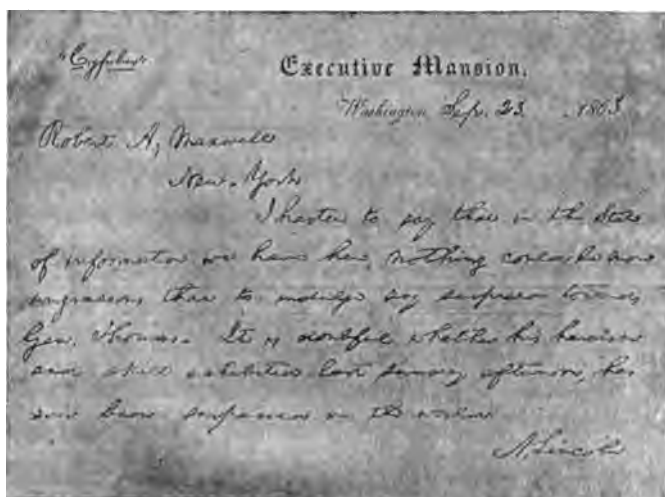 "Cypher"
Executive Mansion,
Washington, Sep. 23, 1863.
Robert A, Maxwell
New-York
I hasten to say that in the State
of information we have here, nothing could be more
ungracious than to indulge any suspicion towards
Gen. Thomas. It is doubtful whether his heroism
and skill exhibited last Sunday afternoon, has
ever been surpassed in the world.
A. Lincoln